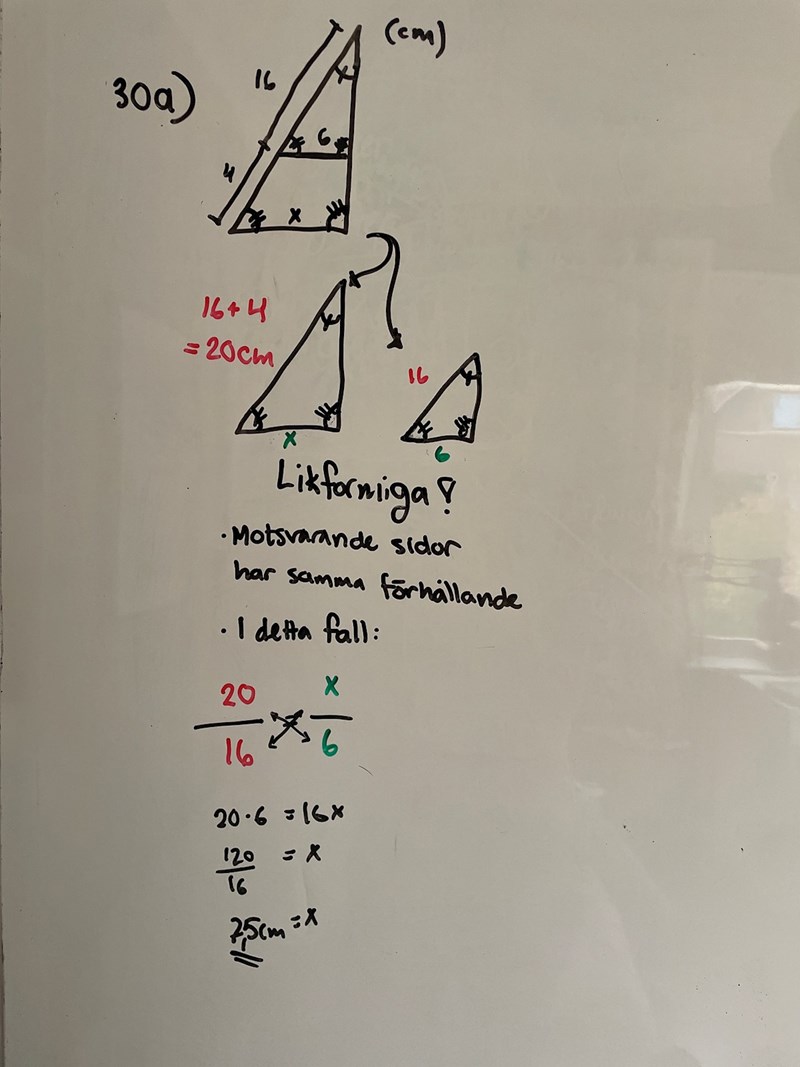 (cm)
30a)
16
6
4
x
16+4
= 20cm
x
16
6
Likformiga!
· Motsvarande sidor
har samma förhållande
· I detta fall:
20 x
16 6
20 · 6 = 16x
120 = x
16
7,5cm = x